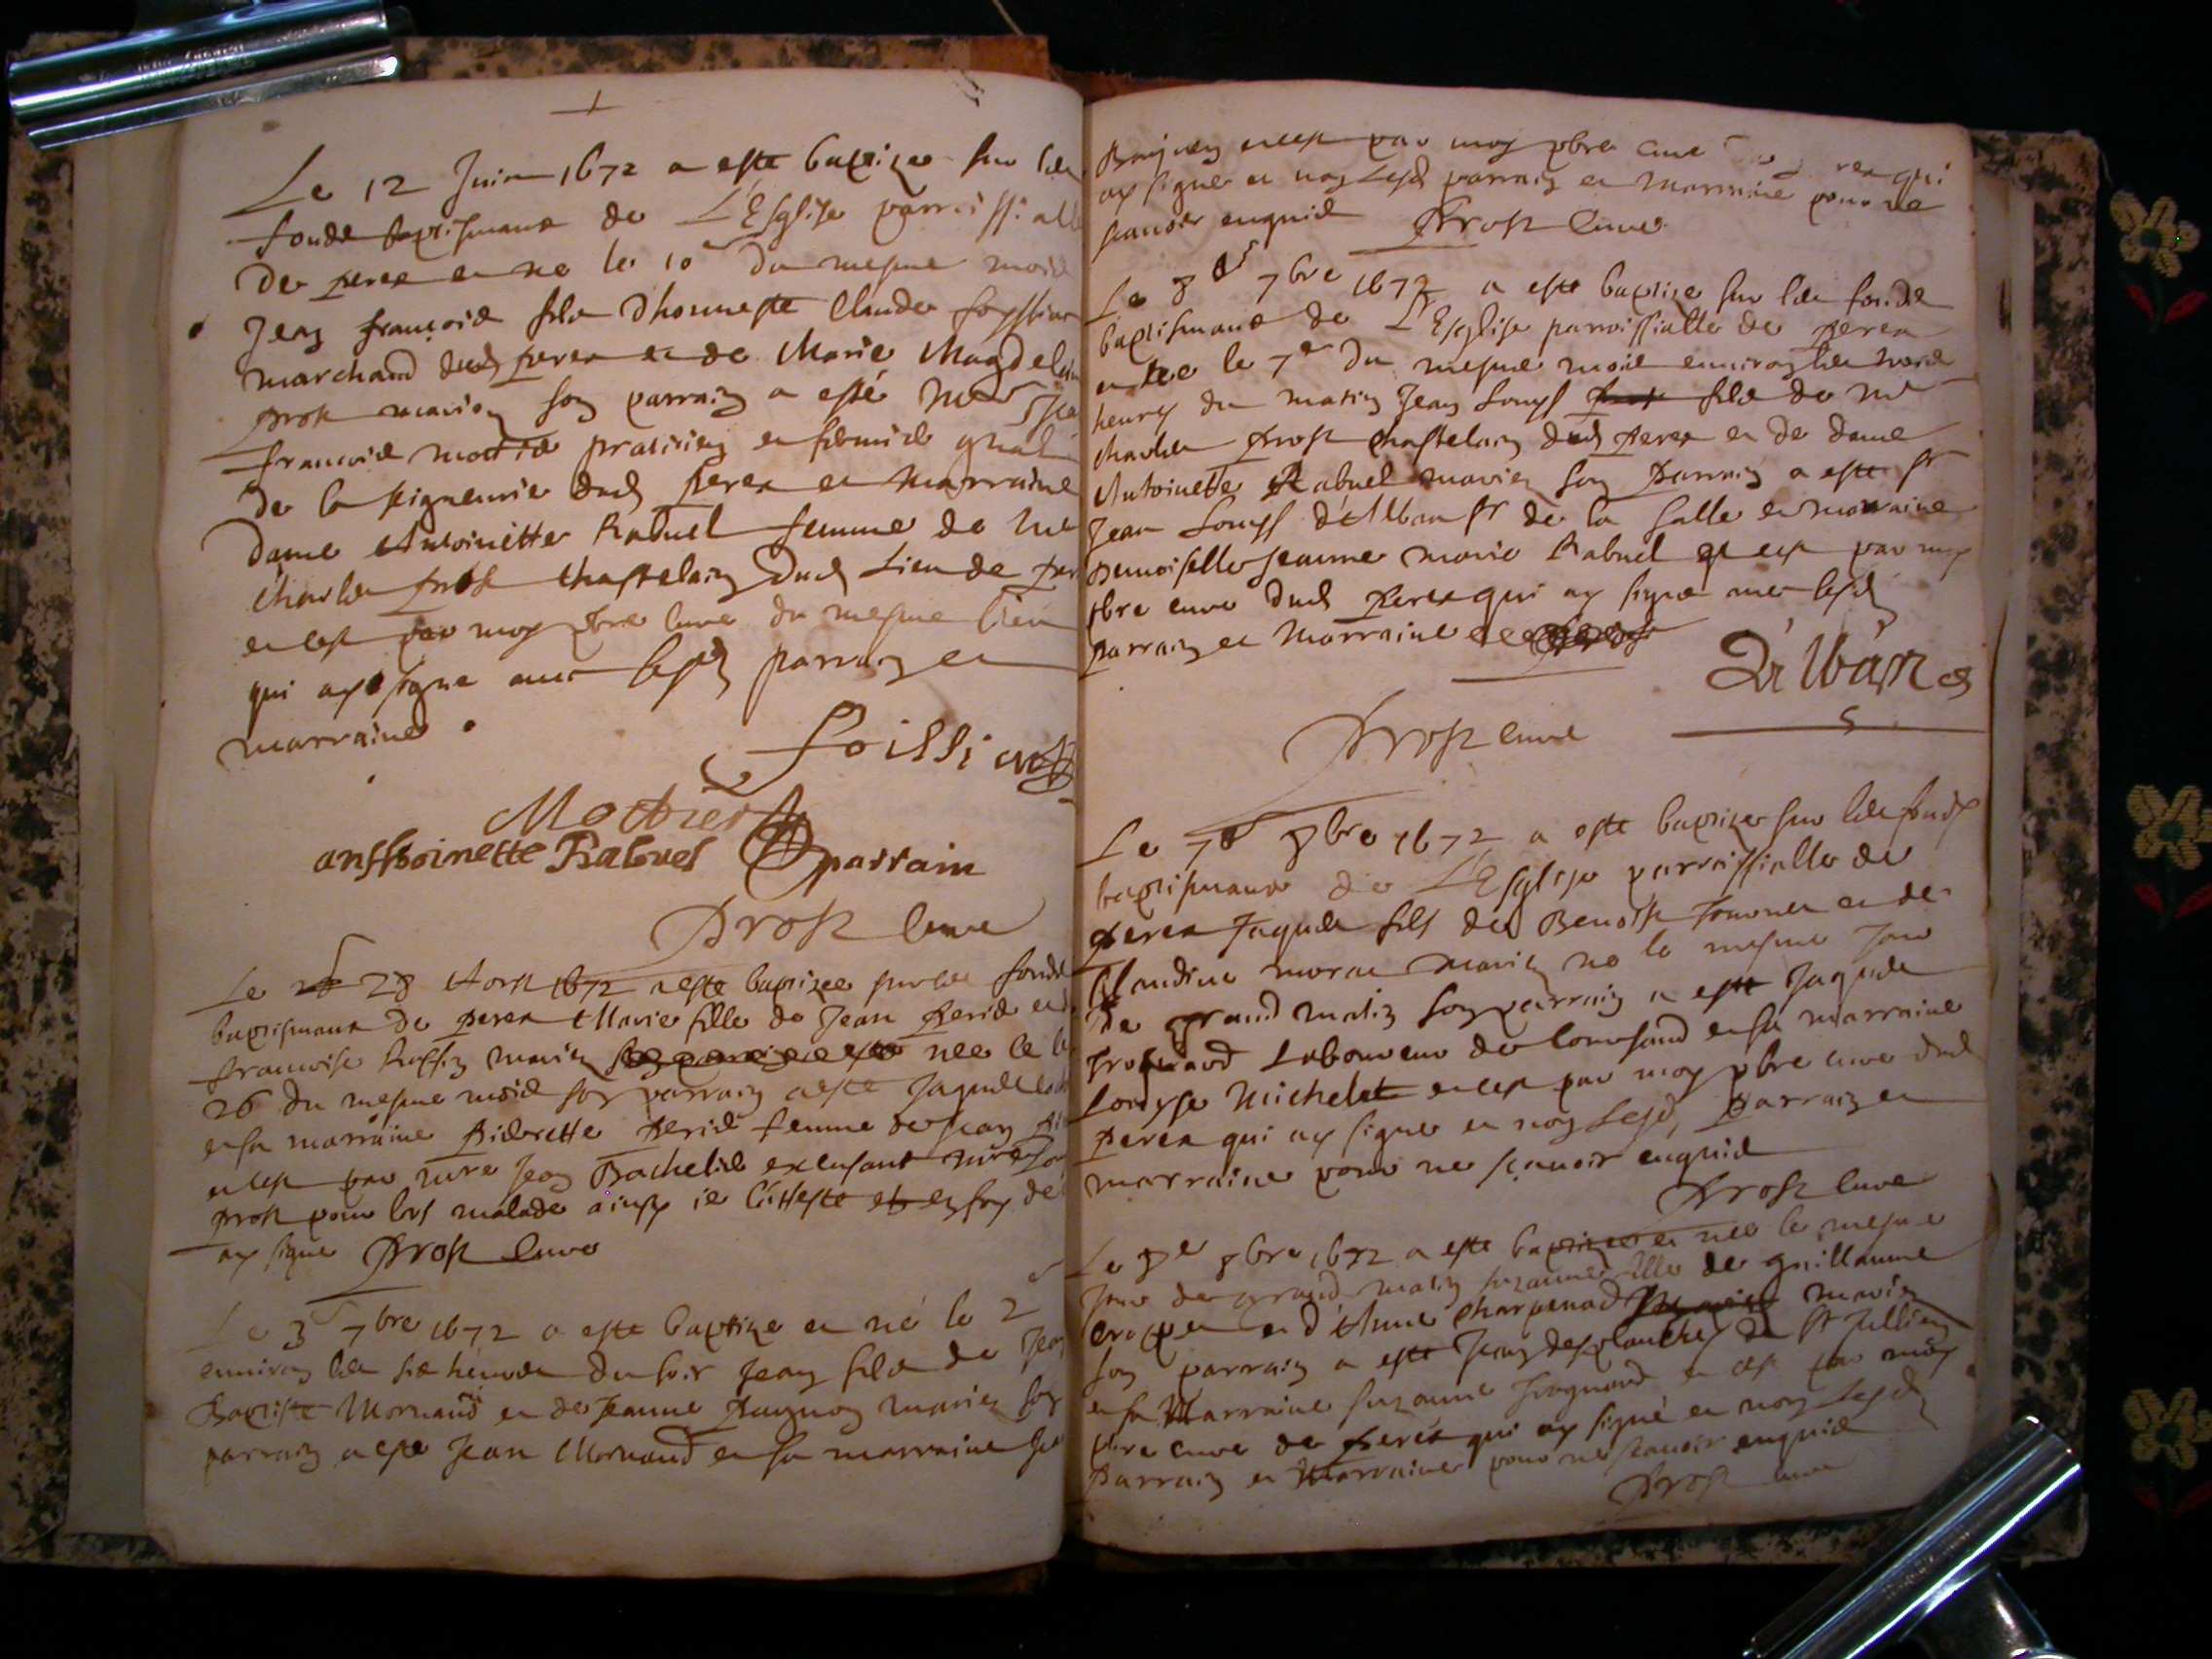 Le 12 Juin 1672 a esté baptizé sur les
fonds baptismaux de L'Esglise parroissialle
de perex et né le 10e du mesme mois
Jean françois fils d'honneste Claude foissiat
marchand dud perex et de Marie Magdelaine
prost mariez son parrain a esté Mr
francois mottié praticien et
de la seigneurie dud perex et marraine
dame Antoinette Rabuel femme de Me
Charles prost Chastelain dud Lieu de perex
et cest par moy pbre curé du mesme lieu
qui ay signé avec lesd parrain et
marraine
foissiat
Mottier
anthoinette Rabuel parrain
Prost curé
Le 28 Aoust 1672 a esté baptizée sur les fonds
baptismaux de perex Marie fille de Jean perid et
francoise Ruffin mariez née le
26 du mesme mois son parrain a esté Jaques
et sa marraine Piderette perid femme de Jean
et cest par mre Jean Bachelid
prost pour lors malade ainsy je l'atteste et en foy de
ay signé Prost curé
Le 3e 7bre 1672 a esté baptizé et né le 2e
environ les six heures du soir Jean fils de Jean
Baptiste Mornand et de Jeanne pagnon mariez son
parrain a esté Jean Mornand et sa marraine
et cest par moy pbre curé qui
ay signé et non Lesd parrain et marraine pour ne
scavoir enquis Prost curé
Le 8e 7bre 1672 a esté baptizé sur les fonds
baptismaux de L'Esglise parroissialle de perex
et né le 7e du mesme mois environ les trois
heures du matin Jean Louys fils de me
Charles Prost chastelain dud perex et de dame
Antoinette Rabuel mariez son parrain a esté sr
Jean Louys d'Alban sr de la salle et marraine
Demoiselle Jeanne marie Rabuel et cest par moy
pbre curé dud perex qui ay signé avec lesd
parrain et marraine
D'alban
Prost curé
Le 7e 8bre 1672 a esté baptizé sur les fonds
baptismaux de L'Esglise parroissialle de
perex Jaques fils de Benoist et de
Claudine morat mariez né le mesme jour
de grand matin son parrain a esté Jaques
fromand Laboureur de et sa marraine
Louyse Michelet et cest par moy pbre curé dud
perex qui ay signé et non Lesd, parrain et
marraine pour ne scavoir enquis
Prost curé
Le 8e 8bre 1672 a esté baptizée et née le mesme
jour de grand matin suzanne fille de guillaume
et d'Anne Charpenad mariez
son parrain a esté Jean desplanches de st Jullien
et sa Marraine suzanne et cest par moy
pbre curé de perex qui ay signé et non Lesd
parrain et Marraine pour ne scavoir enquis
Prost curé